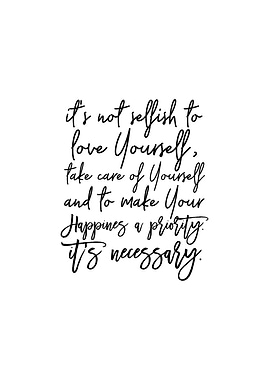 it's not selfish to
love Yourself,
take care of Yourself
and to make Your
Happines a priority.
it's necessary.